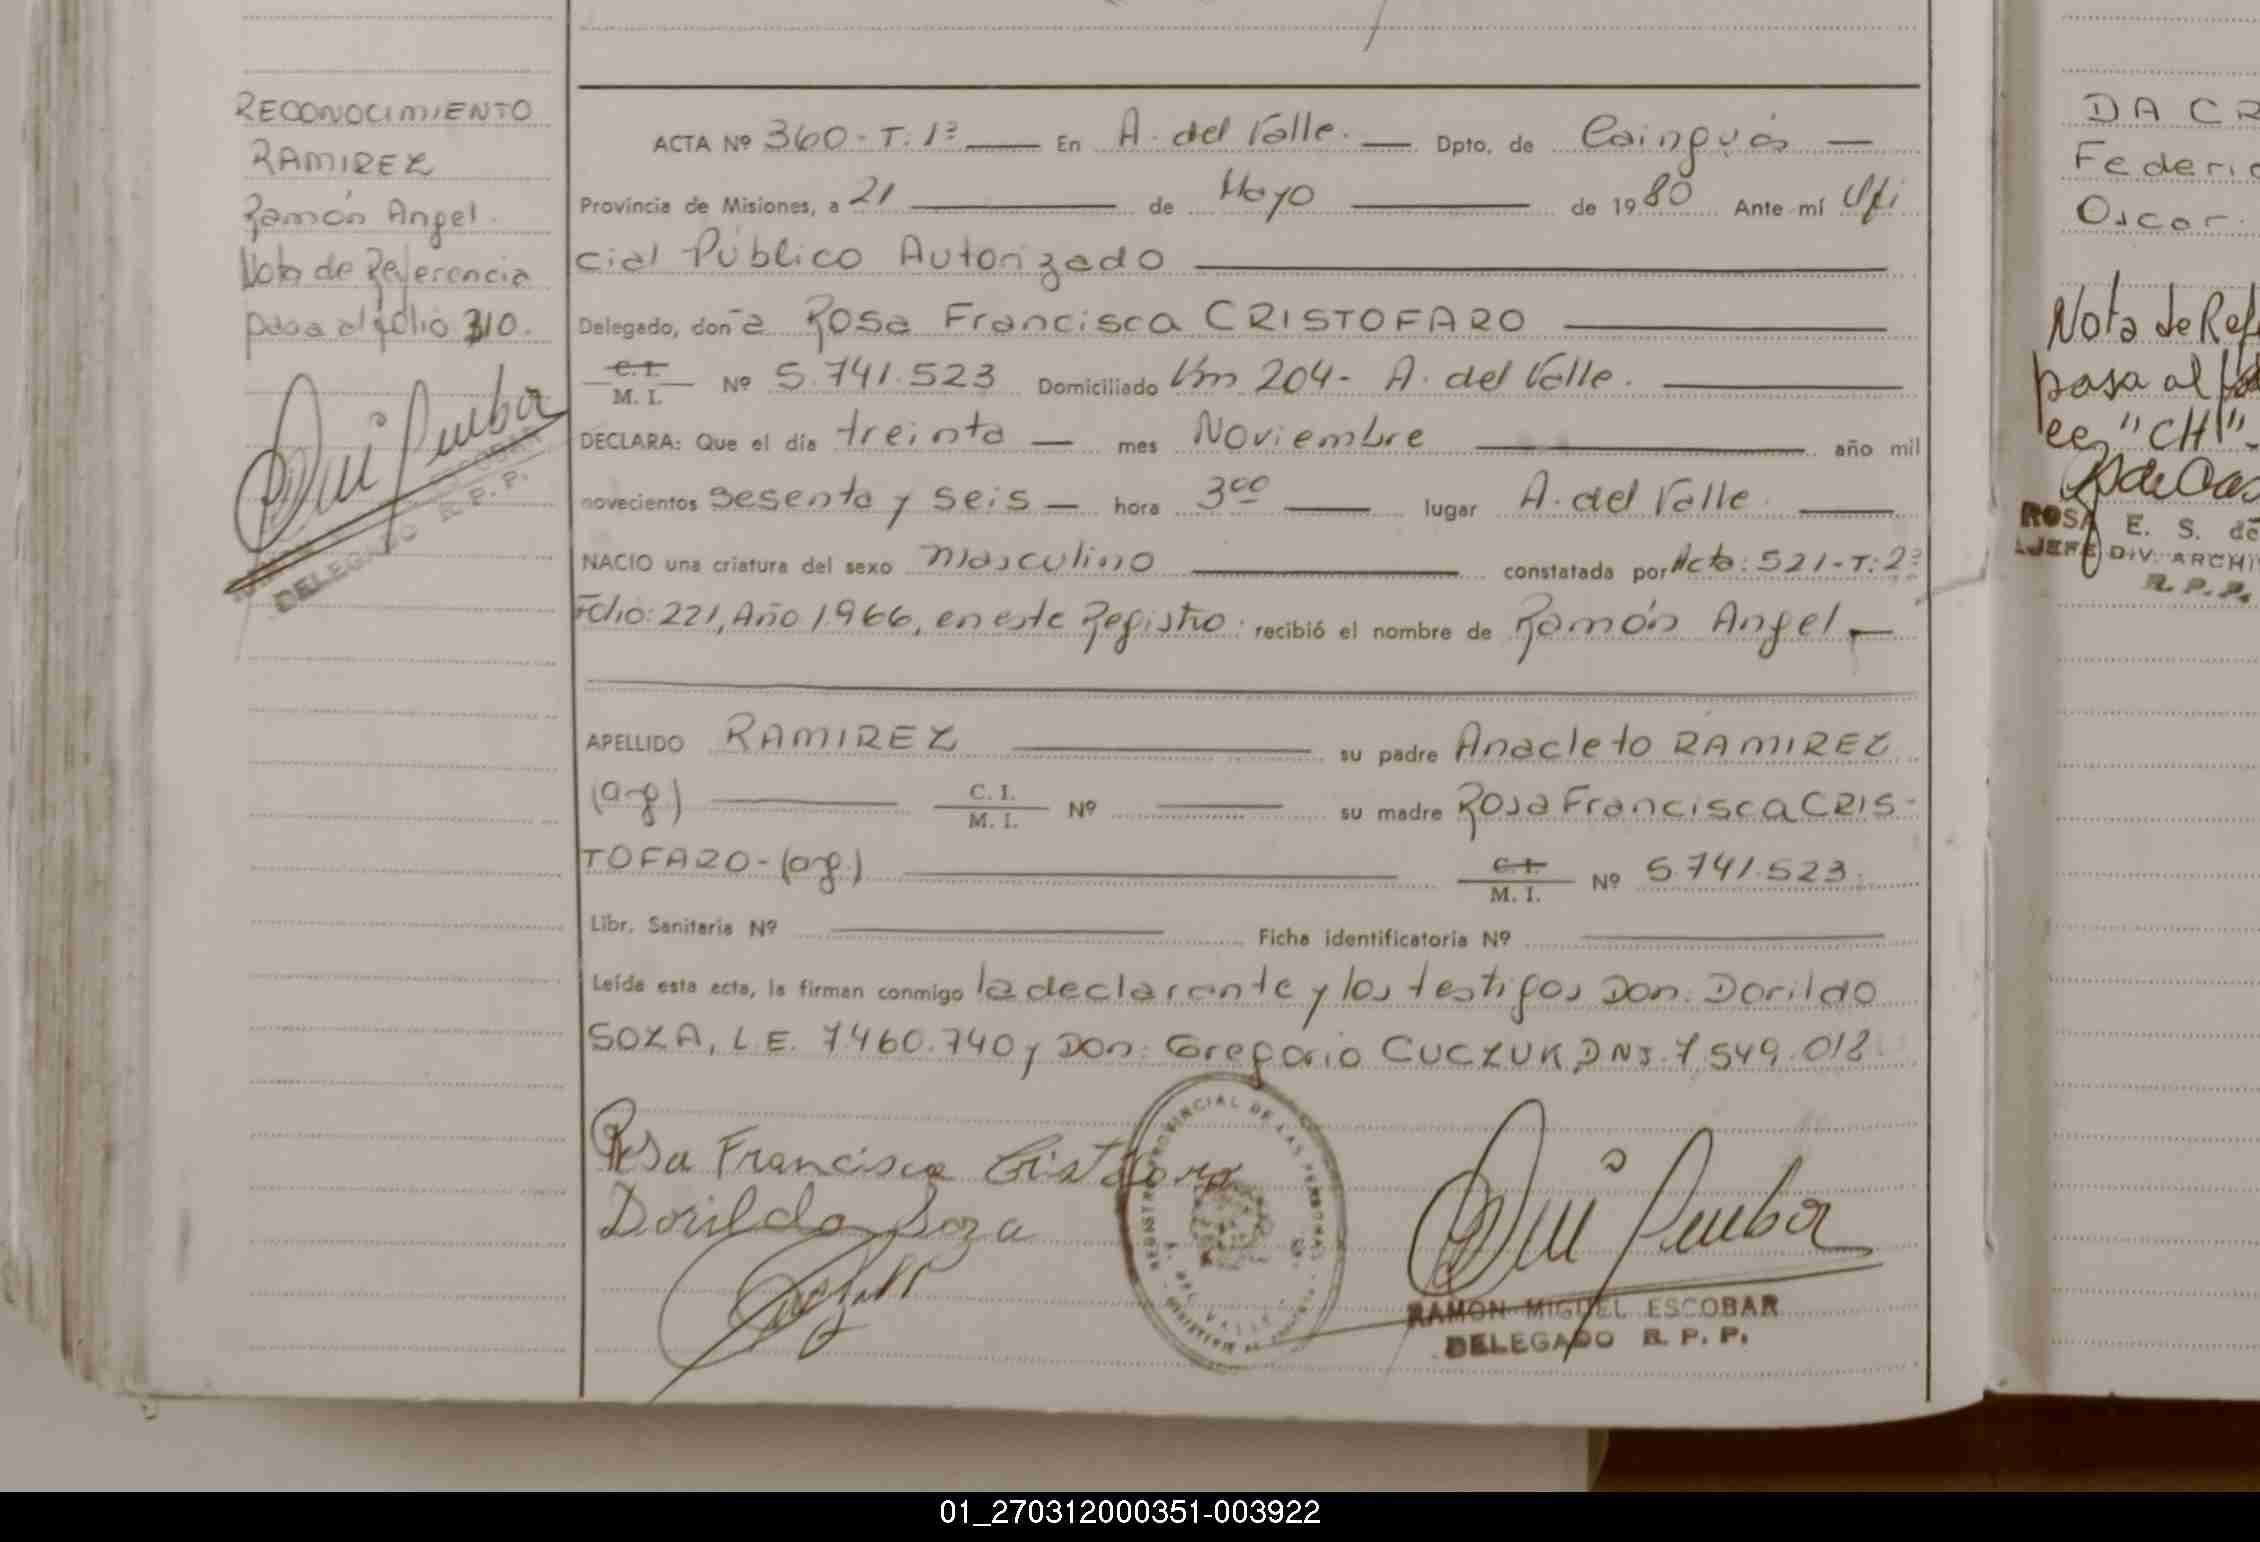 RECONOCIMIENTO
RAMIREZ
Ramón Angel.
Nota de Referencia
pasa al folio 310.
DELEGADO R. P. P.
ACTA Nº 360 - T. 1º En A. del Valle. Dpto. de Cainguás
Provincia de Misiones, a 21 de Mayo de 1980 Ante mí Ofi
cial Público Autorizado
Delegado, don-a Rosa Francisca CRISTOFARO
C. I.
M. I. Nº 5.741.523 Domiciliado Km 204 - A. del Valle.
DECLARA: Que el día treinta mes Noviembre año mil
novecientos sesenta y seis hora 3⁰⁰ lugar A. del Valle.
NACIO una criatura del sexo masculino constatada por Acta: 521 - T. 2º
Folio: 221, Año 1.966, en este Registro. recibió el nombre de Ramón Angel
APELLIDO RAMIREZ su padre Anacleto RAMIREZ
(arg.) C. I.
M. I. Nº su madre Rosa Francisca CRIS-
TOFARO - (arg.) C. I.
M. I. Nº 5.741.523.
Libr. Sanitaria Nº Ficha identificatoria Nº
Leída esta acta, la firman conmigo la declarante y los testigos Don: Dorildo
SOZA, L.E. 7.460.740 y Don: Gregorio CUCZUK, DNI. 7.549.012.
Rosa Francisca Cristofaro
Dorildo Soza
REGISTRO PROVINCIAL DE LAS PERSONAS
A. DEL VALLE
RAMON MIGUEL ESCOBAR
DELEGADO R. P. P.
DA CR
Federic
Oscar.
Nota de Ref
pasa al
"CH"
ROSA E. S. de
JEFE DIV. ARCHI
R. P. P.
01_270312000351-003922